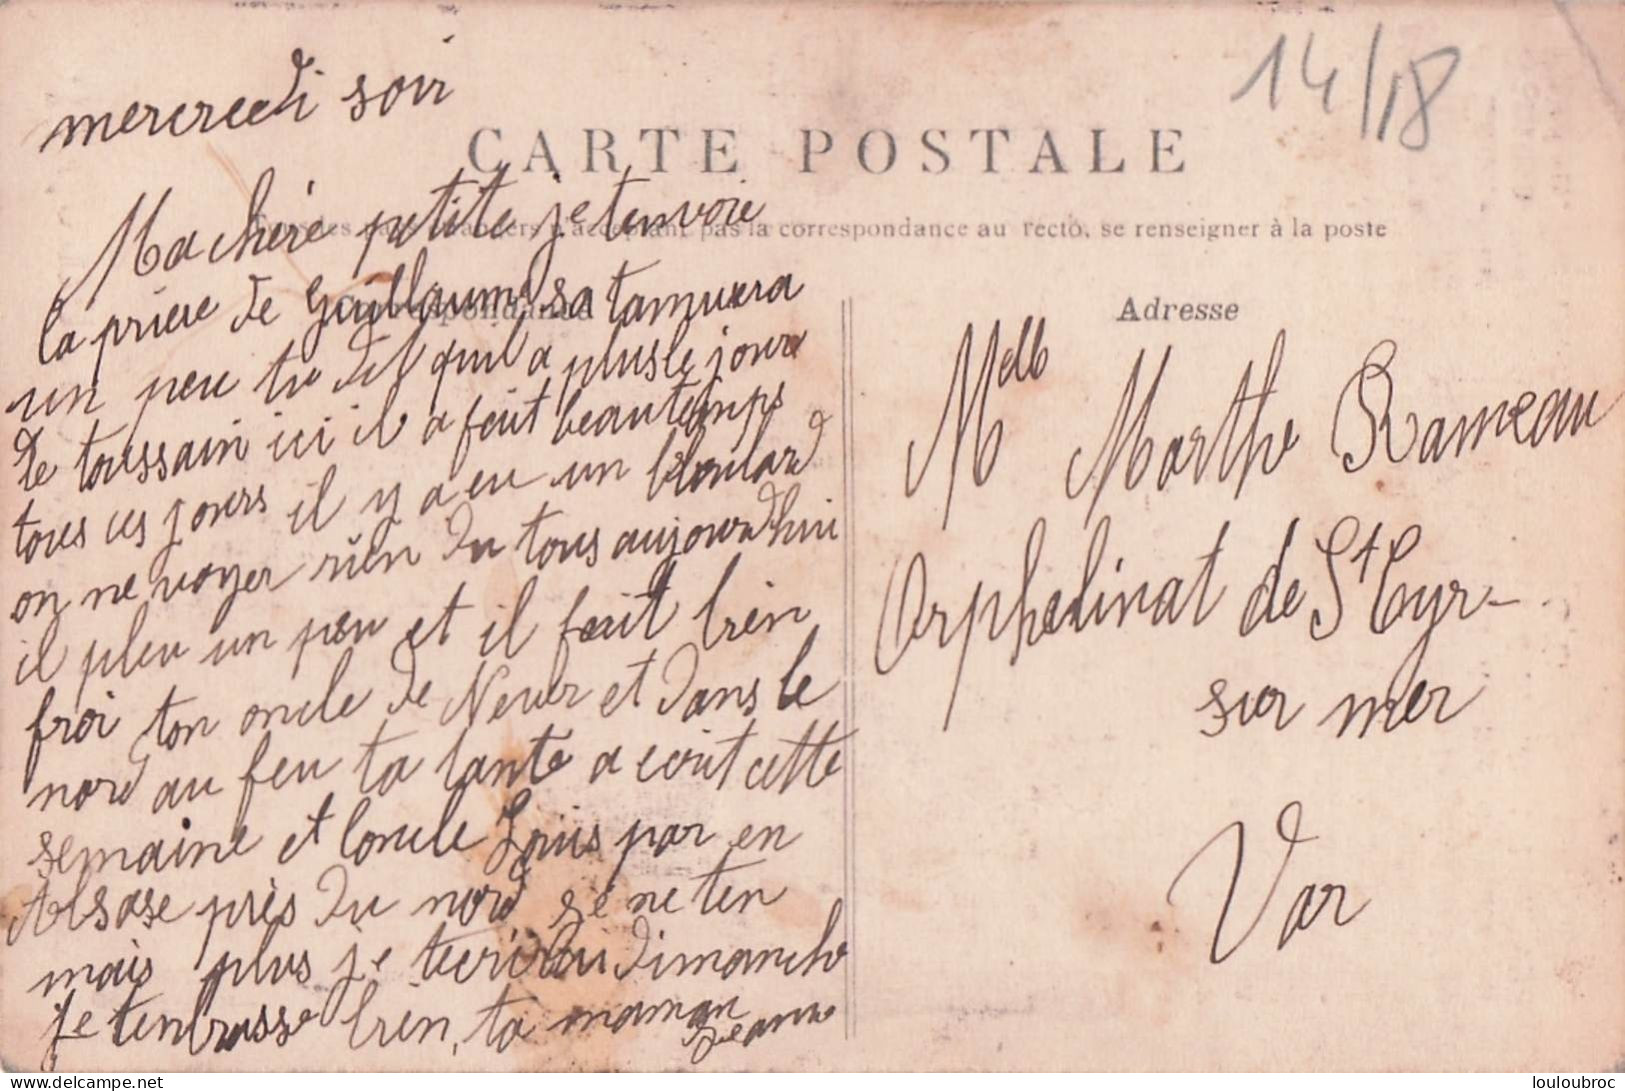 14/18
mercredi soir
CARTE POSTALE
n'acceptant pas la correspondance au recto, se renseigner à la poste
Correspondance
Adresse
Ma chére petite je tenvoie
la priere de Guillaume sa tamusera
un peu tu quil a plus le jour
de toussain ici il a fait beautemps
tous ces jours il y a eu un
on ne voyer rien du tous aujourdhui
il pleu un peu et il fait bien
froi ton oncle de Never et dans le
nord au feu ta tante a ecrit cette
semaine et loncle Louis par en
Alsase près du nord se ne ten
mais plus je tecrirai dimanche
Je tenbrasse bien, ta maman
Jeanne
Mdlle Marthe Rameau
Orphelinat de St Cyr-
sur mer
Var
www.delcampe.net
louloubroc